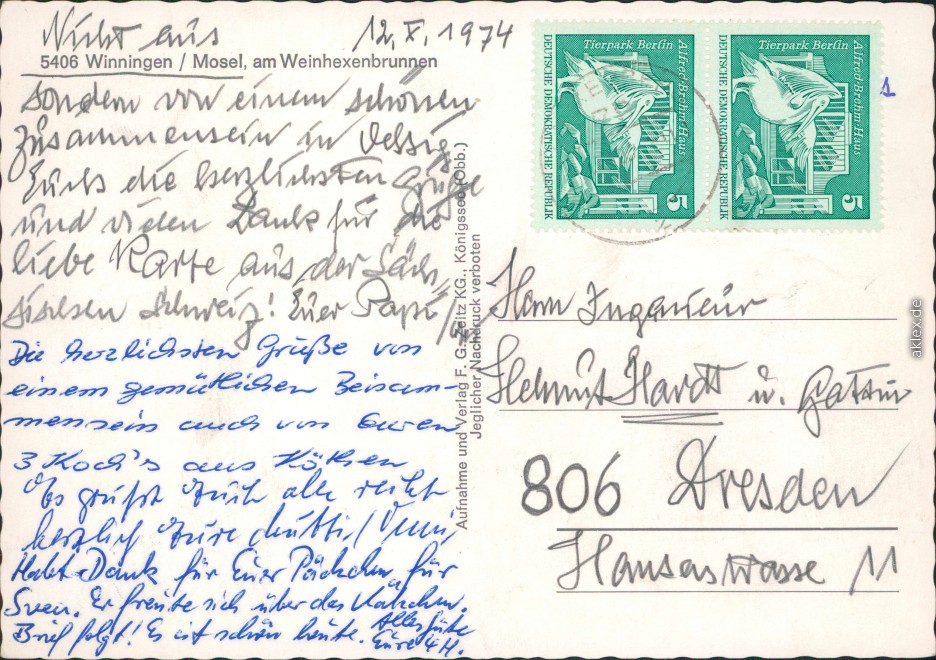 Nicht aus
12. X. 1974
5406 Winningen / Mosel, am Weinhexenbrunnen
sondern von einem schönen
Zusammensein in
Euch die herzlichsten Grüße
und vielen Dank für die
liebe Karte aus der Säch-
sischen Schweiz! Euer Papi
Die herzlichsten Grüße von
einem gemütlichen Beisam-
mensein auch von Euren
3 Koch's aus Köthen
Es grüßt Euch alle recht
herzlich Eure Mutti
Habt Dank für Euer Päckchen für
Sven. Er freute sich über das
Brief folgt! Es ist schön heute. Alles Gute
Eure 4 H.
Aufnahme und Verlag F. G. Zeitz KG., Königssee (Obb.)
Jeglicher Nachdruck verboten
Tierpark Berlin
Alfred-Brehm-Haus
DEUTSCHE DEMOKRATISCHE REPUBLIK
5
Tierpark Berlin
Alfred-Brehm-Haus
DEUTSCHE DEMOKRATISCHE REPUBLIK
5
1
Herrn Ingenieur
Helmut Hardt u. Gattin
806 Dresden
Hansastrasse 11
aklex.de